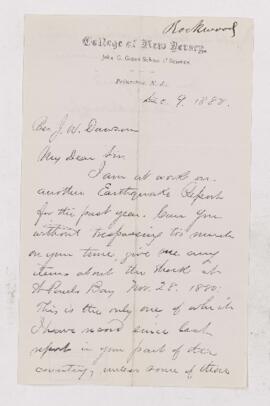 Rockwood
College of New Jersey,
John C. Green School of Science
Princeton, N. J.,
Dec. 9. 1880.
J. W. Dawson
My Dear Sir
I am at work on
another Earthquake Report
for the past year. Can you
without trespassing too much
on your time, give me any
items about the shock at
St Pauls Bay Nov. 28. 1880.
This is the only one of which
I have record since last
report in your part of the
country, unless some of those